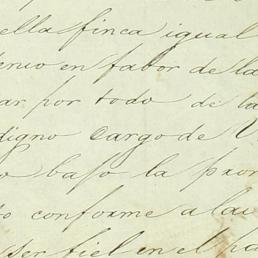 ella finca igual
en fabor de la
ar por todo de la
digno cargo de
o bajo la pro
to conforme a la
ser fiel en el pa